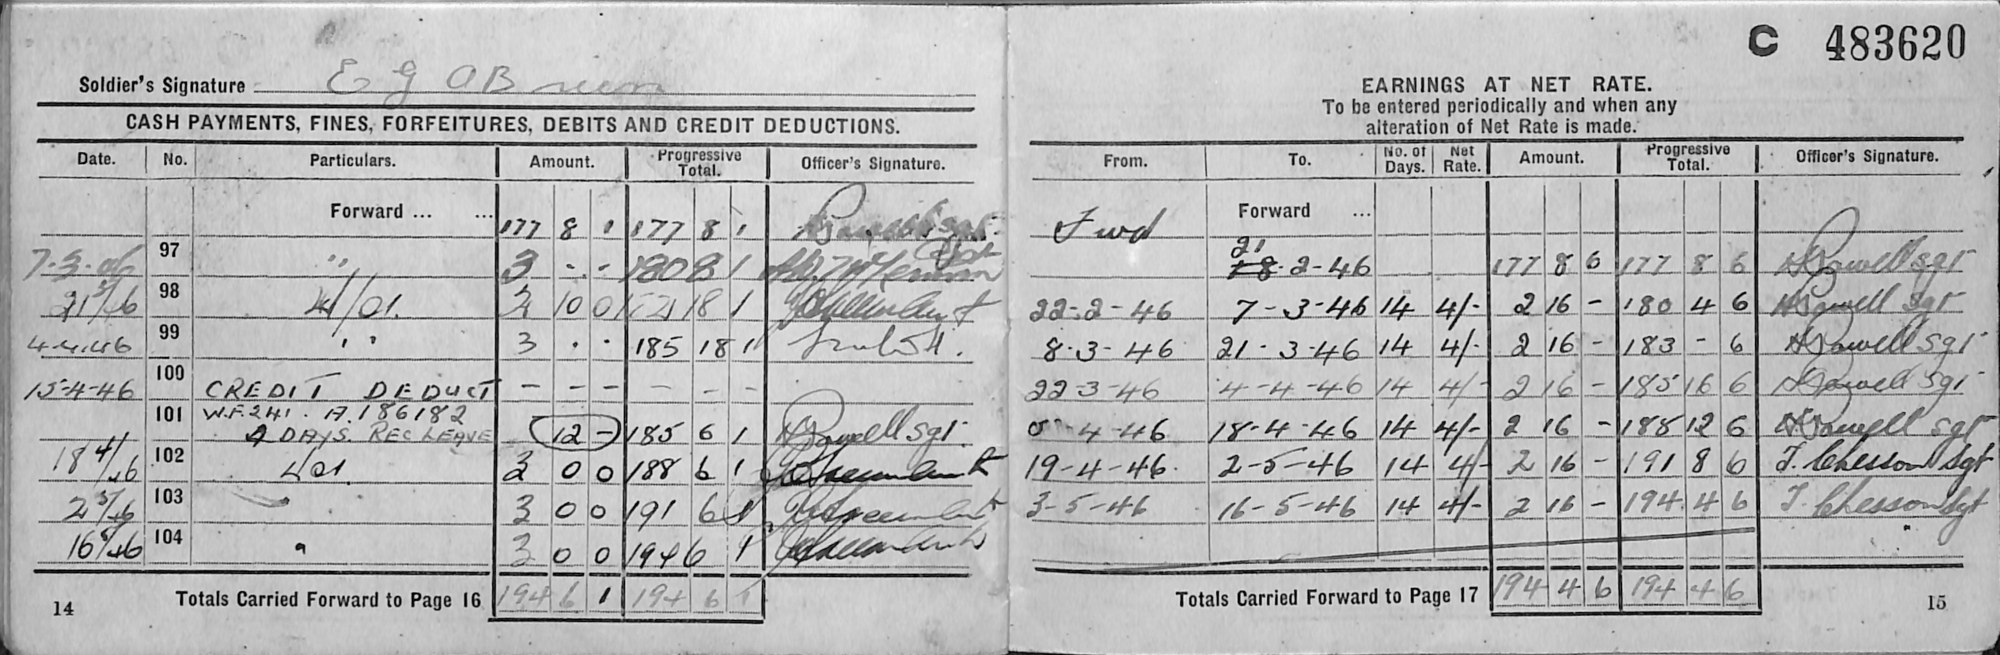 C 483620
Soldier's Signature E G OBrien
CASH PAYMENTS, FINES, FORFEITURES, DEBITS AND CREDIT DEDUCTIONS.
Date. No. Particulars. Amount. Progressive Total. Officer's Signature.
Forward ... ... 177 8 1 177 8 1
7-3-46 97 " 3 - - 180 8 1
21/3/46 98 4/01. 2 10 0 182 18 1
4-4-46 99 " 3 . . 185 18 1
15-4-46 100 CREDIT DEDUCT - - - - - -
101 W.F.241. A.186182
DAYS. REC LEAVE (12 -) 185 6 1 Powell Sgt.
18/4/46 102 4/01 3 0 0 188 6 1
2/5/46 103 " 3 0 0 191 6 1
16/5/46 104 " 3 0 0 194 6 1
Totals Carried Forward to Page 16 194 6 1 194 6 1
14
EARNINGS AT NET RATE.
To be entered periodically and when any
alteration of Net Rate is made.
From. To. No. of Days. Net Rate. Amount. Progressive Total. Officer's Signature.
Fwd Forward ...
21
18.2-46 177 8 6 177 8 6 Powell Sgt
22-2-46 7-3-46 14 4/- 2 16 - 180 4 6 Powell Sgt
8-3-46 21-3-46 14 4/- 2 16 - 183 - 6 Powell Sgt
22-3-46 4-4-46 14 4/- 2 16 - 185 16 6 Powell Sgt
5-4-46 18-4-46 14 4/- 2 16 - 188 12 6 Powell Sgt
19-4-46 2-5-46 14 4/- 2 16 - 191 8 6 T. Chesson Sgt
3-5-46 16-5-46 14 4/- 2 16 - 194 4 6 T. Chesson Sgt
Totals Carried Forward to Page 17 194 4 6 194 4 6
15